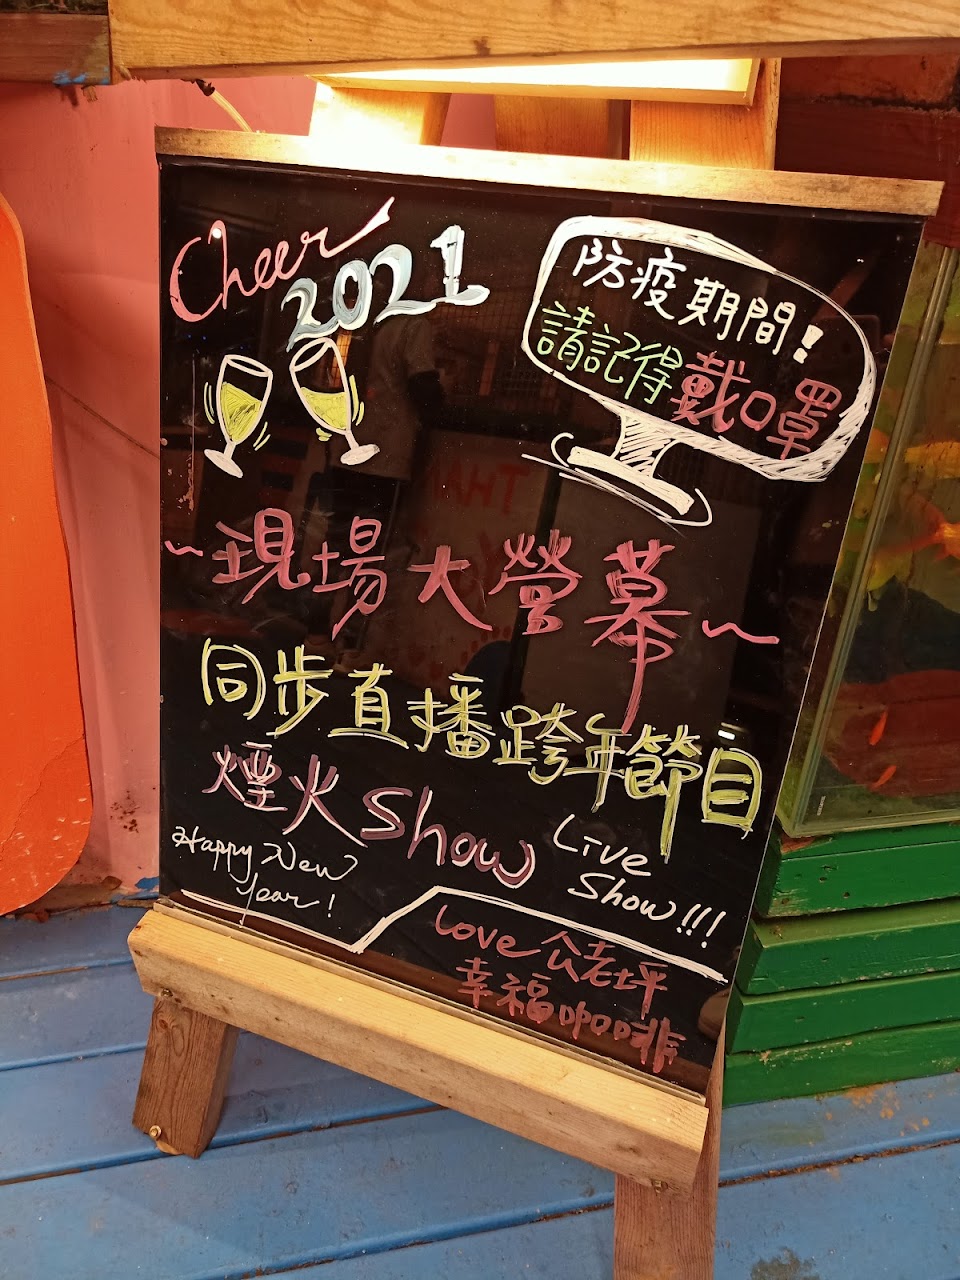 Cheer
2021
防疫期間!
請記得戴口罩
~現場大營幕~
同步直播跨年節目
煙火Show
Live
Show!!!
Happy New
Year!
Love 公老坪
幸福咖啡